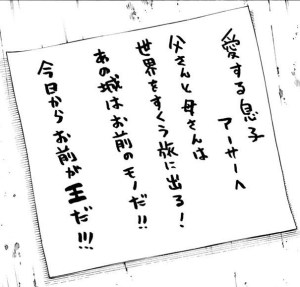 愛する息子
アーサーへ
父さんと母さんは
世界をすくう旅に出る!
あの城はお前のモノだ!!
今日からお前が王だ!!!